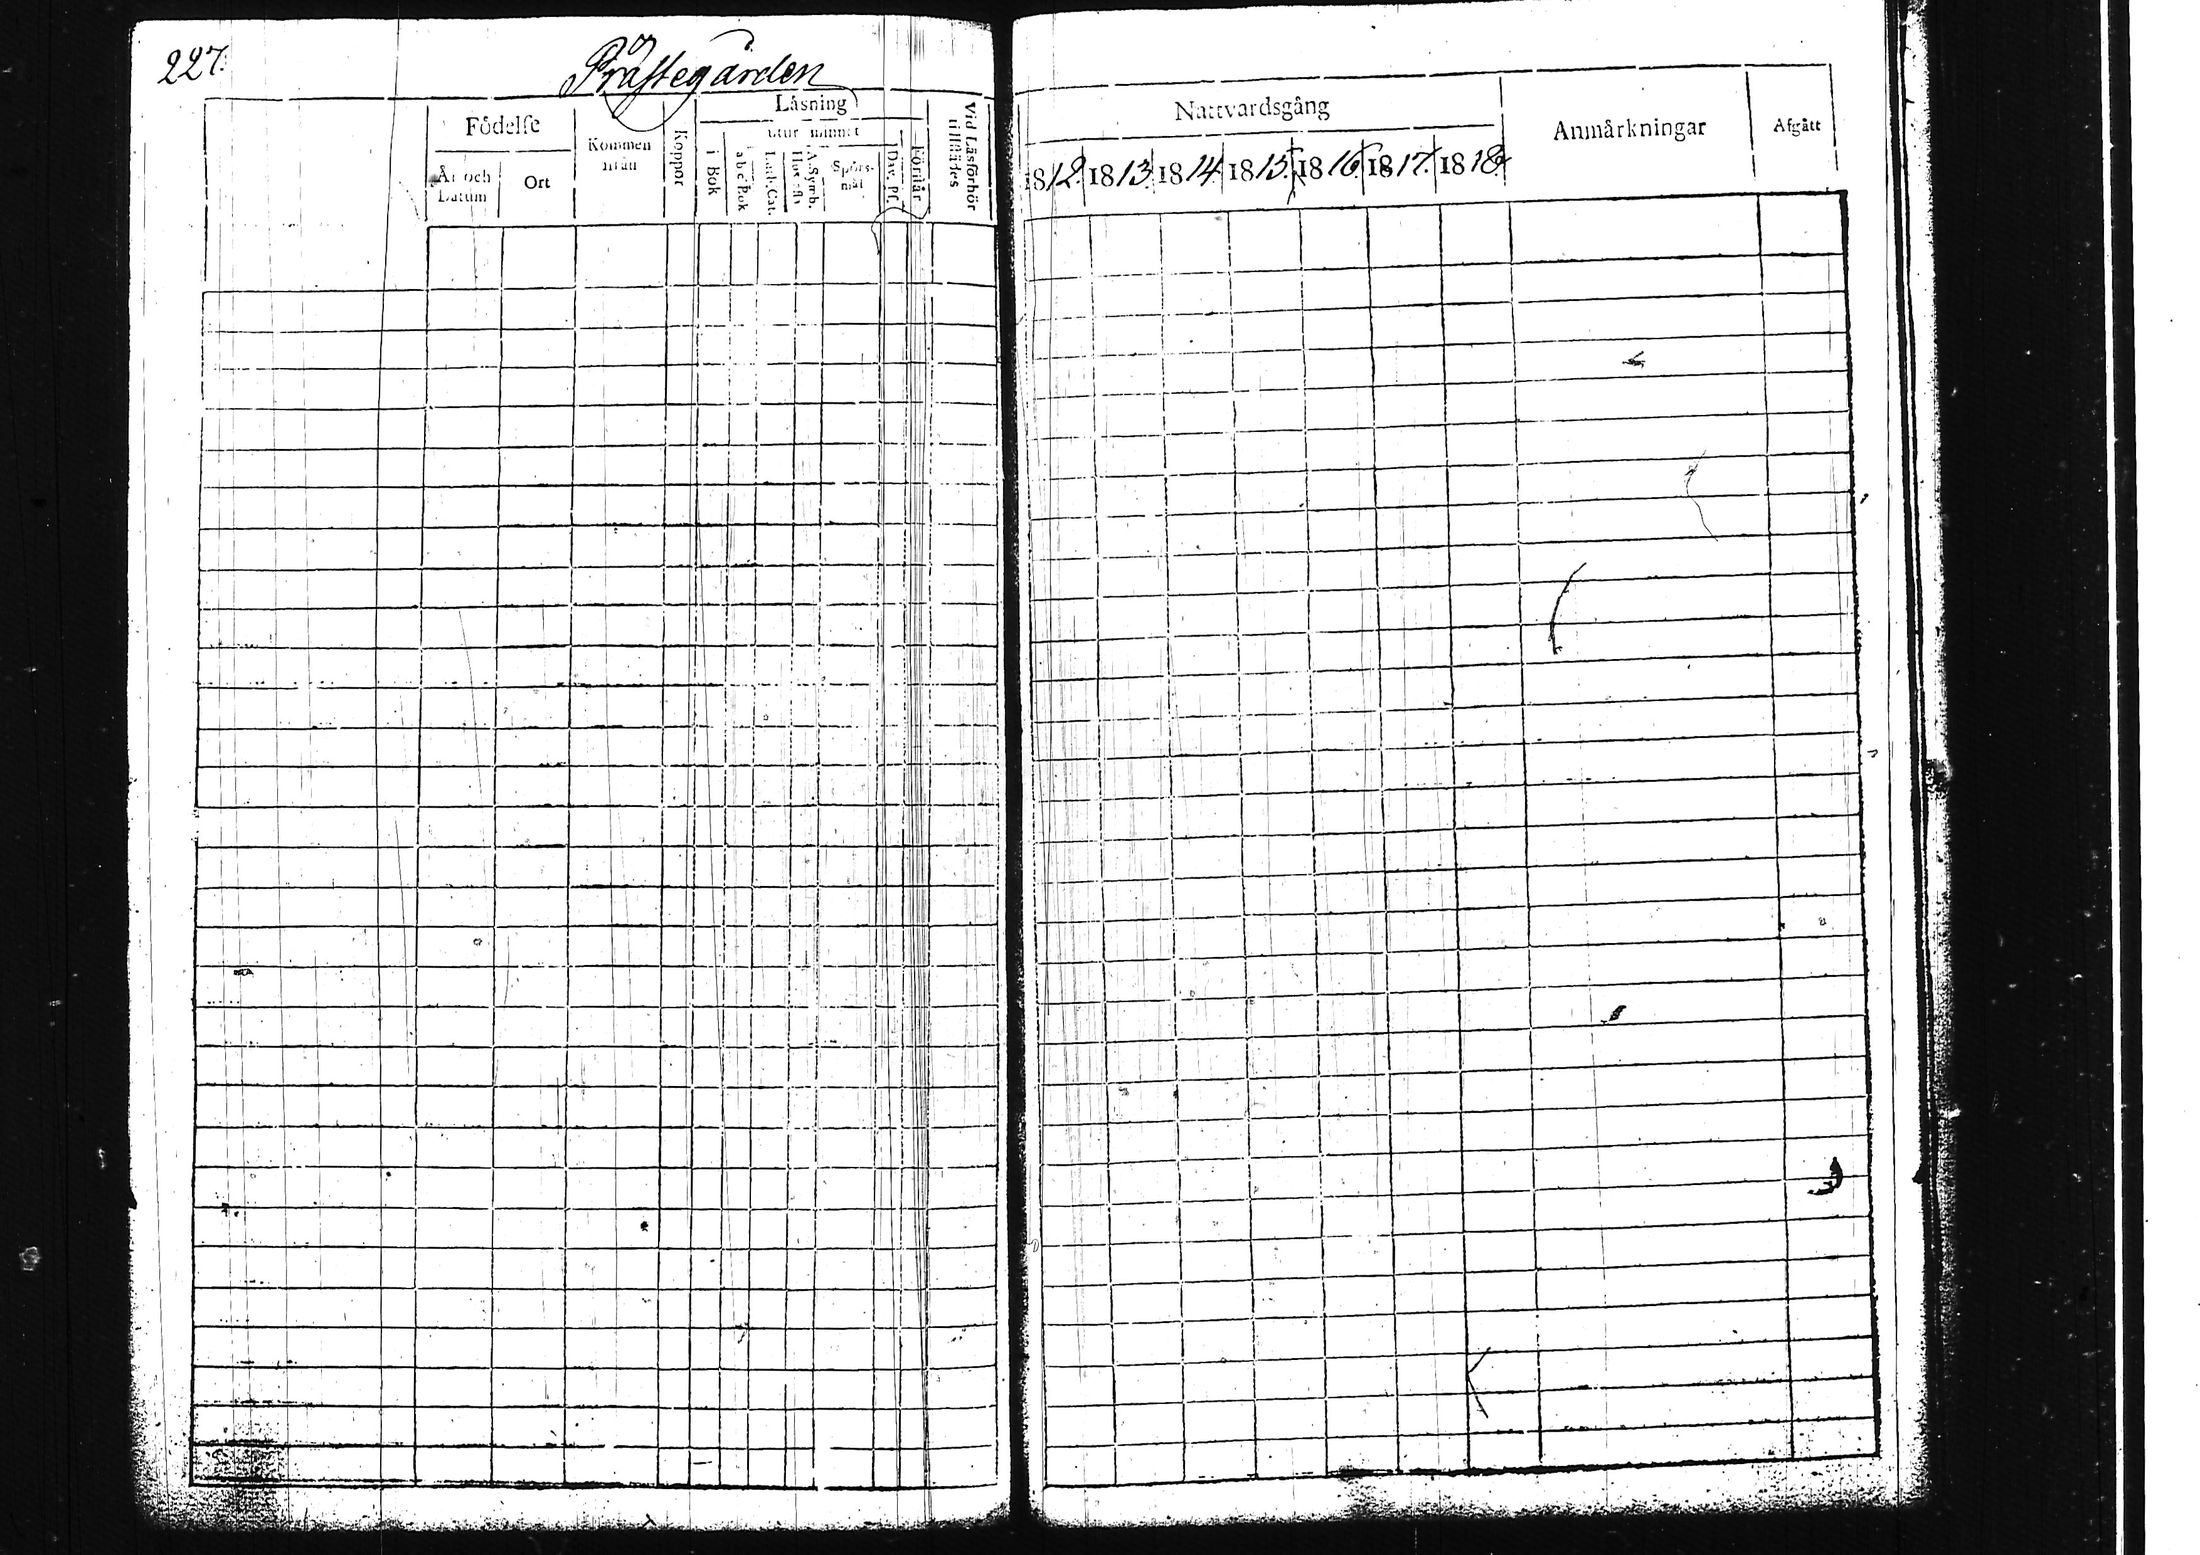 227.
Prästegården
Födelse
År och Datum
Ort
Kommen ifrån
Koppor
Läsning
i Bok
utur minnet
a b c Bok
Luth. Cat.
Hustafla
A. Symb.
Spörsmål
Dav. Ps.
Förstår
Vid Läsförhör tillstädes
Nattvardsgång
1812. 1813. 1814. 1815. 1816. 1817. 1818.
Anmärkningar
Afgått